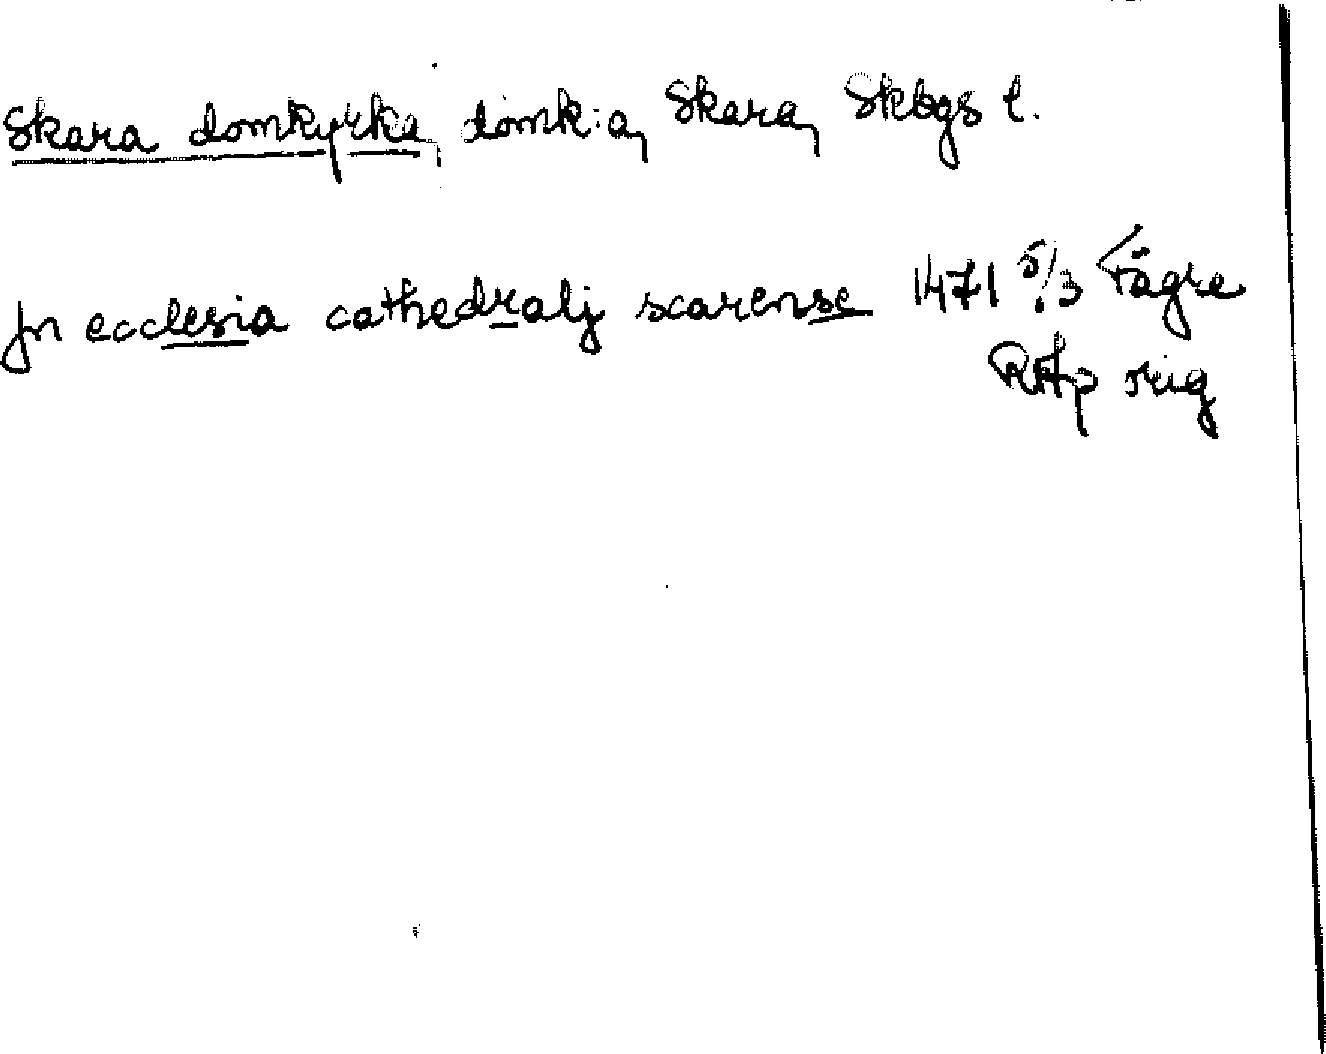 Skara domkyrka, domk:a, Skara, Skbgs l.
Jn ecclesia cathedralj scarense 1471 5/3 Fägre
RAp orig